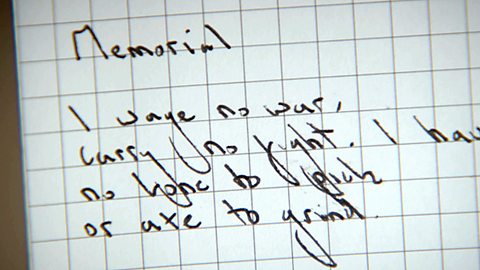 Memorial
I wage no war,
carry no fight. I hav
no bone to pick
or axe to grind.